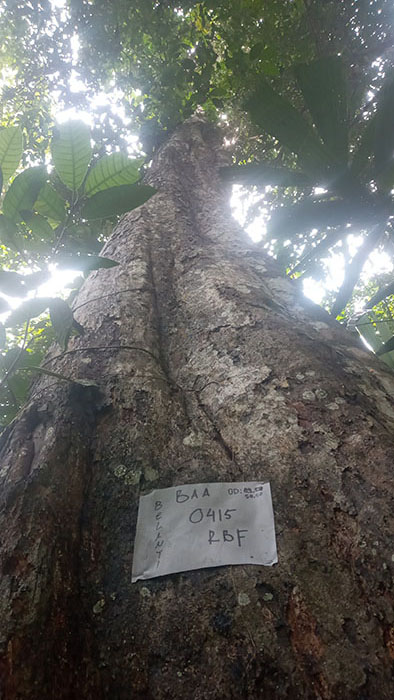 BELANTI
BAA
0415
RBF